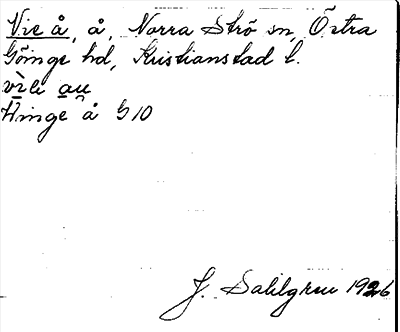 Vie å, å, Norra Strö sn, Östra
Göinge hd, Kristianstad l.
Hinge å G 10
J. Sahlgren 1926